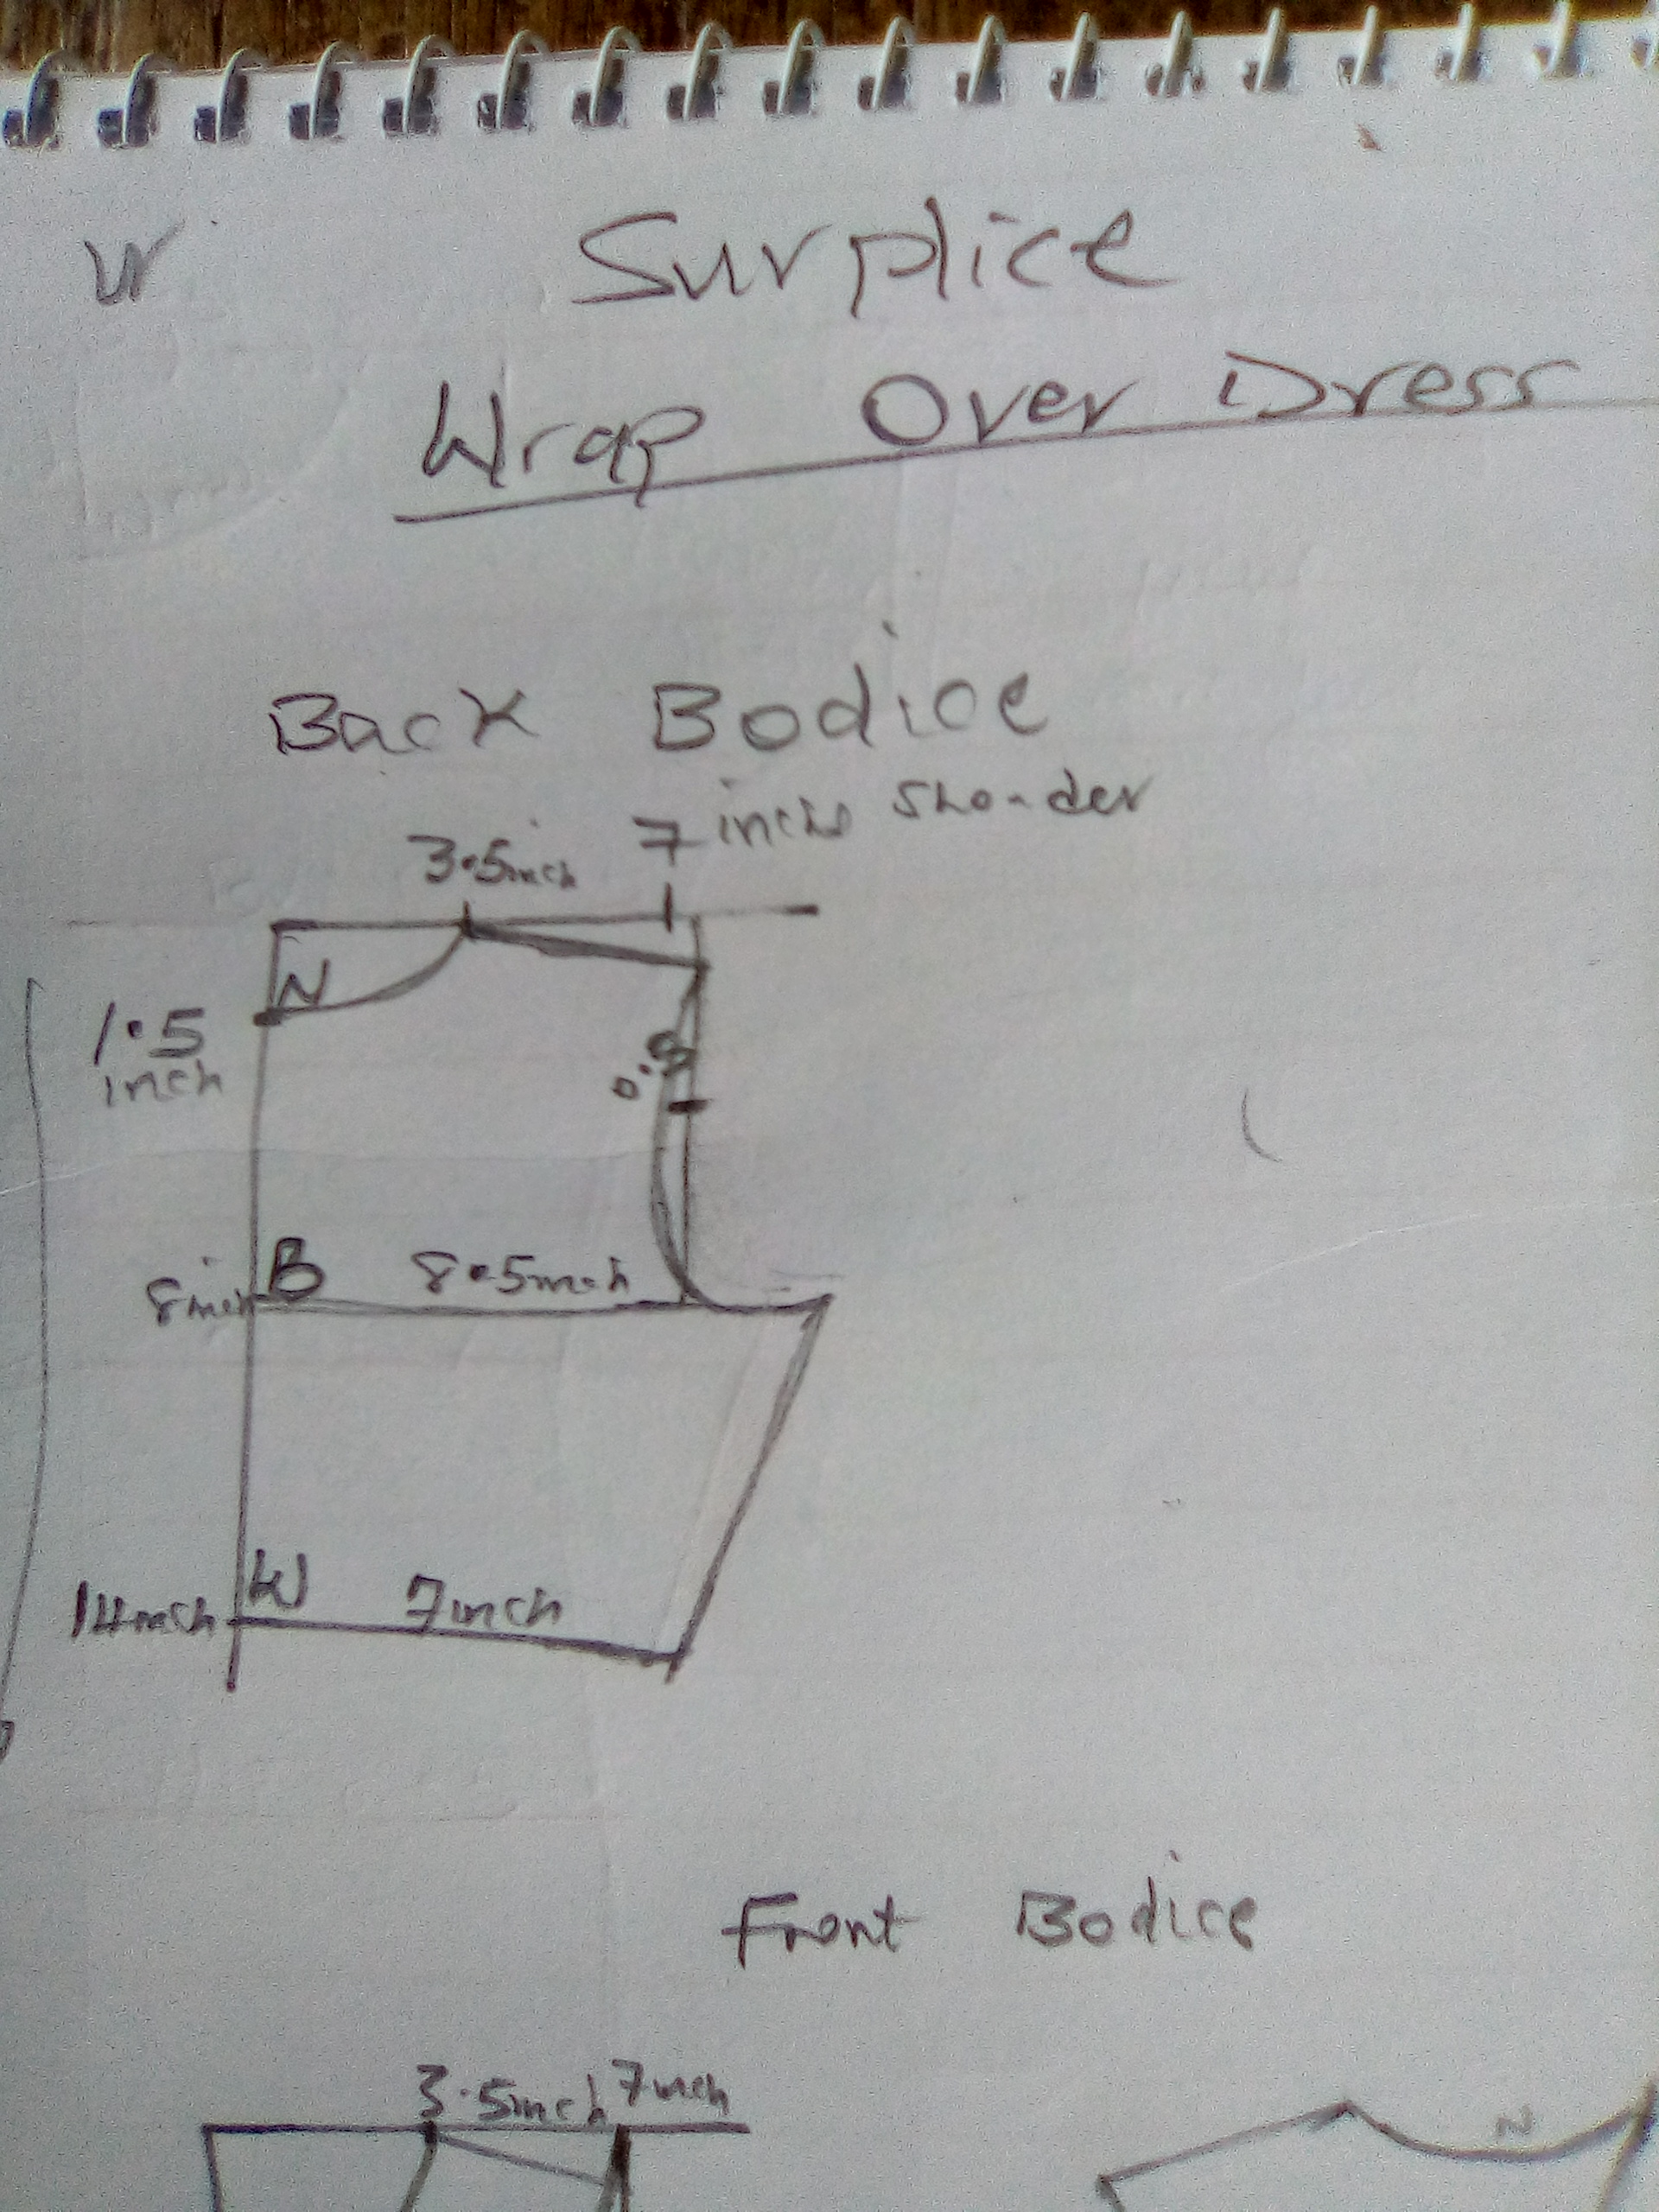 W
Surplice
Wrap Over Dress
Back Bodice
3.5inch 7 inchs Shoder
N
1.5
inch
0.5
8inch B 8.5inch
14inch W 7inch
Front Bodice
3.5inch 7inch
N